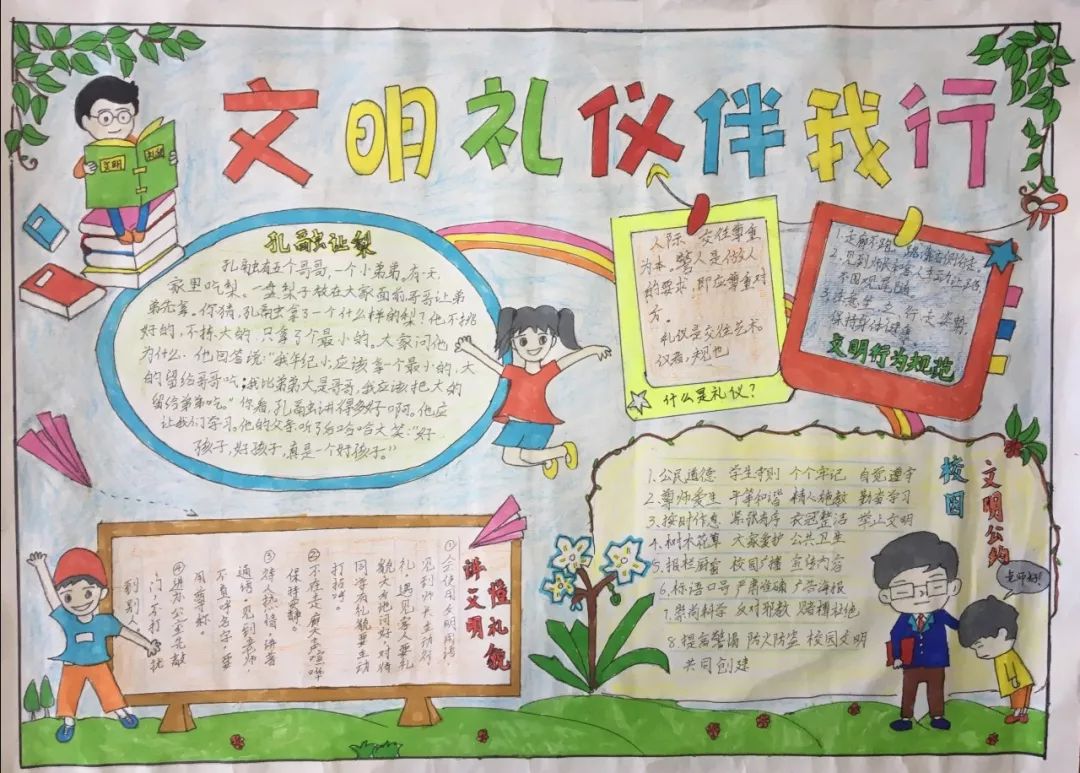 文明礼仪伴我行
文明
礼仪
孔融让梨
孔融有五个哥哥,一个小弟弟,有一天,
家里吃梨。一盘梨子放在大家面前,哥哥让弟
弟先拿。你猜,孔融拿了一个什么样的梨?他不挑
好的,不拣大的,只拿了个最小的。大家问他
为什么,他回答说:“我年纪小,应该拿个最小的,大
的留给哥哥吃;我比弟弟大是哥哥,我应该把大的
留给弟弟吃。”你看,孔融讲得多好啊。他应
让我们学习。他的父亲听了后哈哈大笑:“好
孩子,好孩子,真是一个好孩子。”
人际 交往尊重
为本,
人是做人
的要求,即应尊重对
方。
礼仪是交往艺术。
仪者,规也
什么是礼仪?
1.走廊不跑,
2.见到师长客人主动让路
不围观尾随
3.注意坐、立、行走姿势,
保持身体健康
文明行为规范
懂礼貌
讲文明
①人人使用文明用语
见到师长主动敬
礼,遇见客人要礼
貌大方地问好,对待
同学有礼貌要主动
打招呼。
②不在走廊大声喧哗
保持安静。
③待人热情,讲普
通话,见到老师,
不直呼名字,要
用尊称。
④进办公室先敲
门,不打扰
别人
校园
文明公约
1.公民道德 学生守则 个个牢记 自觉遵守
2.尊师爱生 平等和谐 精人施教 勤奋学习
3.按时作息 紧张有序 衣冠整洁 举止文明
4.树木花草 大家爱护 公共卫生
5.报栏厨窗 校园广播 宣传内容
6.标语口号 严肃准确 广告海报
7.崇尚科学 反对邪教 赌博
8.提高警惕 防火防盗 校园文明
共同创建
老师好!